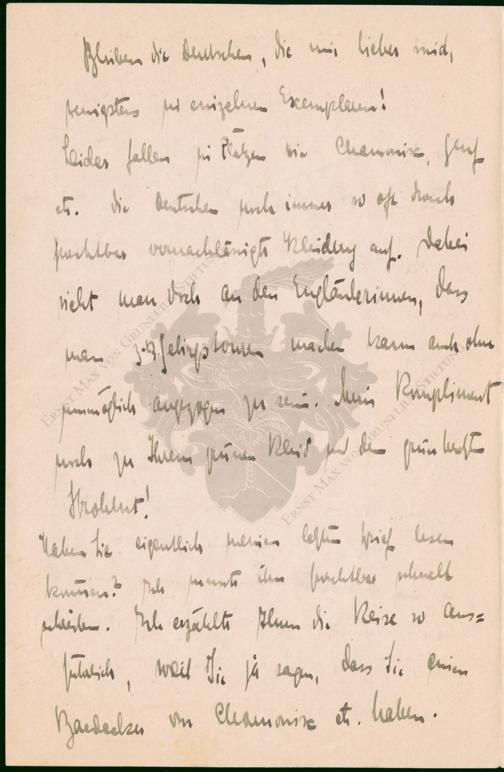 Bleiben die Deutschen, die mir lieber sind,
wenigstens in einzelnen Exemplaren!
Leider fallen in Plätzen wie Chamonix, Genf
etc. die Deutschen noch immer so oft durch
furchtbar vernachlässigte Kleidung auf. Dabei
sieht man doch an den Engländerinnen, dass
man z.B. Gebirgstouren machen kann auch ohne
unmöglich angezogen zu sein. Mein Kompliment
noch zu Ihrem grünen Kleid und dem grün
Strohhut!
Haben Sie eigentlich meinen letzten Brief lesen
können? Ich musste ihn furchtbar schnell
schreiben. Ich erzählte Ihnen die Reise so aus=
führlich, weil Sie ja sagen, dass Sie einen
Baedecker von Chamonix etc. haben.
ERNST MAX VON GRUNELIUS-STIFTUNG
ERNST MAX VON GRUNELIUS-STIFTUNG